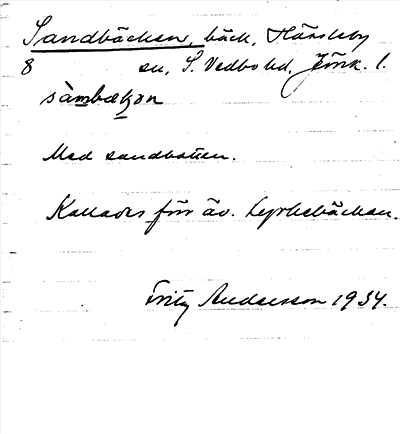 Sandbäcken, bäck, Hässleby
8 sn, S. Vedbo hd, Jönk. l.
sàmbækən
Med sandbotten.
Kallades förr äv. Lyckebäcken.
Fritz Andersson 1934.